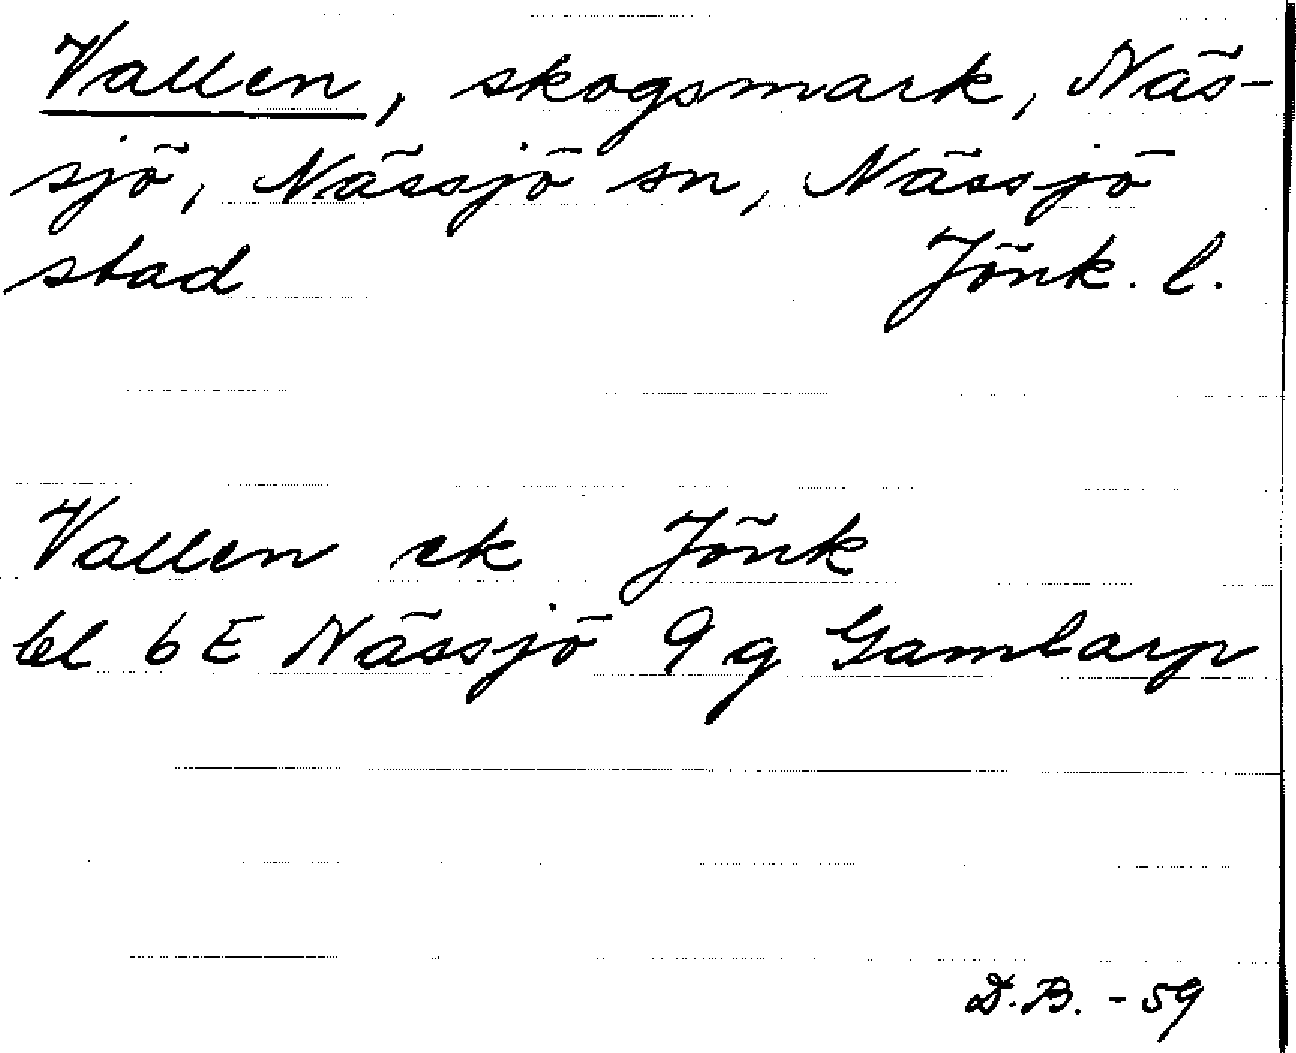 Vallen, skogsmark, Näs-
sjö, Nässjö sn, Nässjö
stad Jönk. l.
Vallen ek Jönk
bl 6E Nässjö 9g Gamlarp
D.B. - 59